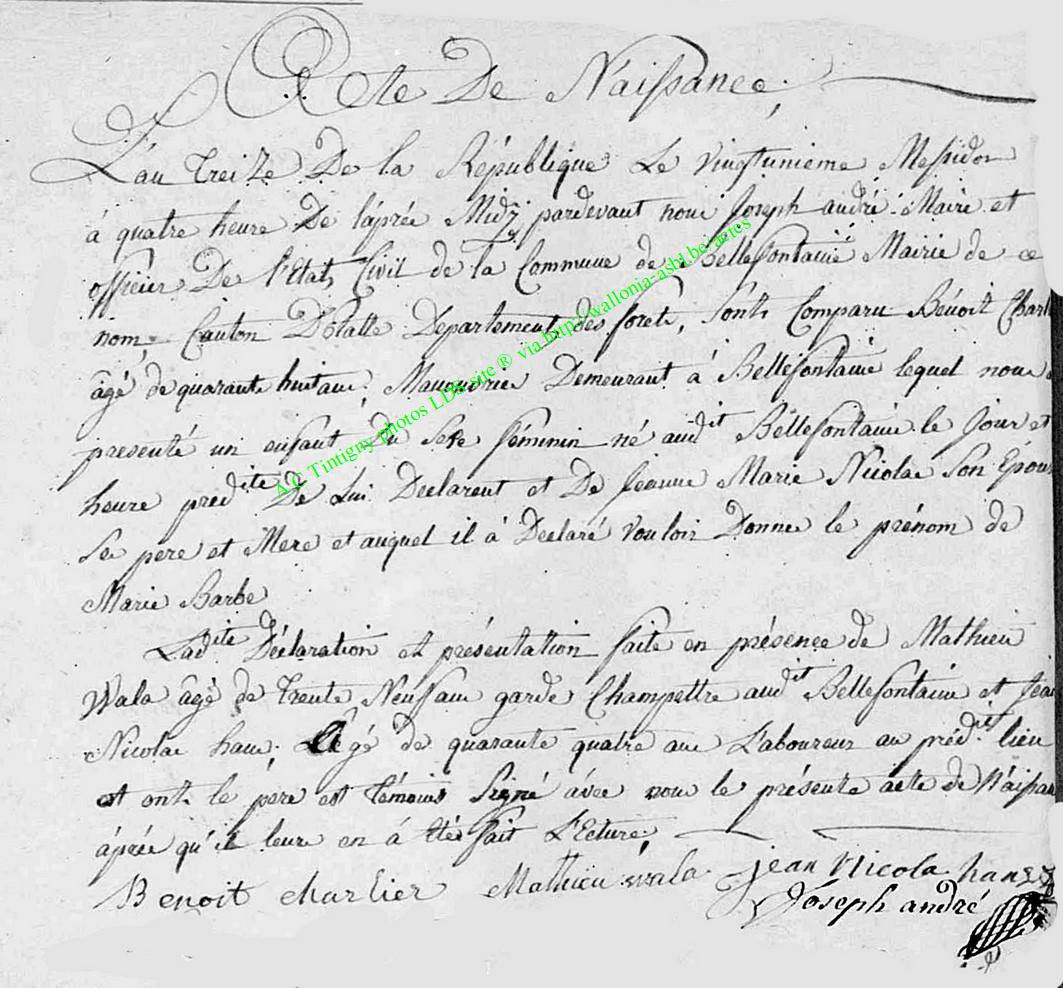 Acte De Naissance,
L'an treize De la République Le vingtunieme Messidor
à quatre heure De l'aprée Midÿ pardevant nous Joseph andré Maire et
officier De l'Etat Civil de la Commune de Bellefontaine Mairie de ce
nom, Canton D'Etalle Departement des forets, sont Comparu Bénoit Charl
âgé de quarante huit ans, Manouvrie Demeurant à Bellefontaine lequel nous
presenté un enfant Du sexe féminin né audit Bellefontaine le Jour et
heure predite De Lui Declarent et De Jeanne Marie Nicolas Son Epous
Ses pere et Mere et auquel il à Declaré vouloir Donner le prénom de
Marie Barbe
Ladite Déclaration et présentation faite en présence de Mathieu
Wala âgé de trente Neuf ans garde Champettre audit Bellefontaine et Jean
Nicolas hans, Agé de quarante quatre ans L'aboureur au prédit lieu
et onts le père est témoins Signé avec nous le présente acte de Naissan
âprée qu'il leure en à été fait L'Ecture,
Benoit charlier Mathieu wala jean Nicola hans
Joseph andré
A.C Tintigny photos LDS site ® via http//wallonia-asbl.be/actes